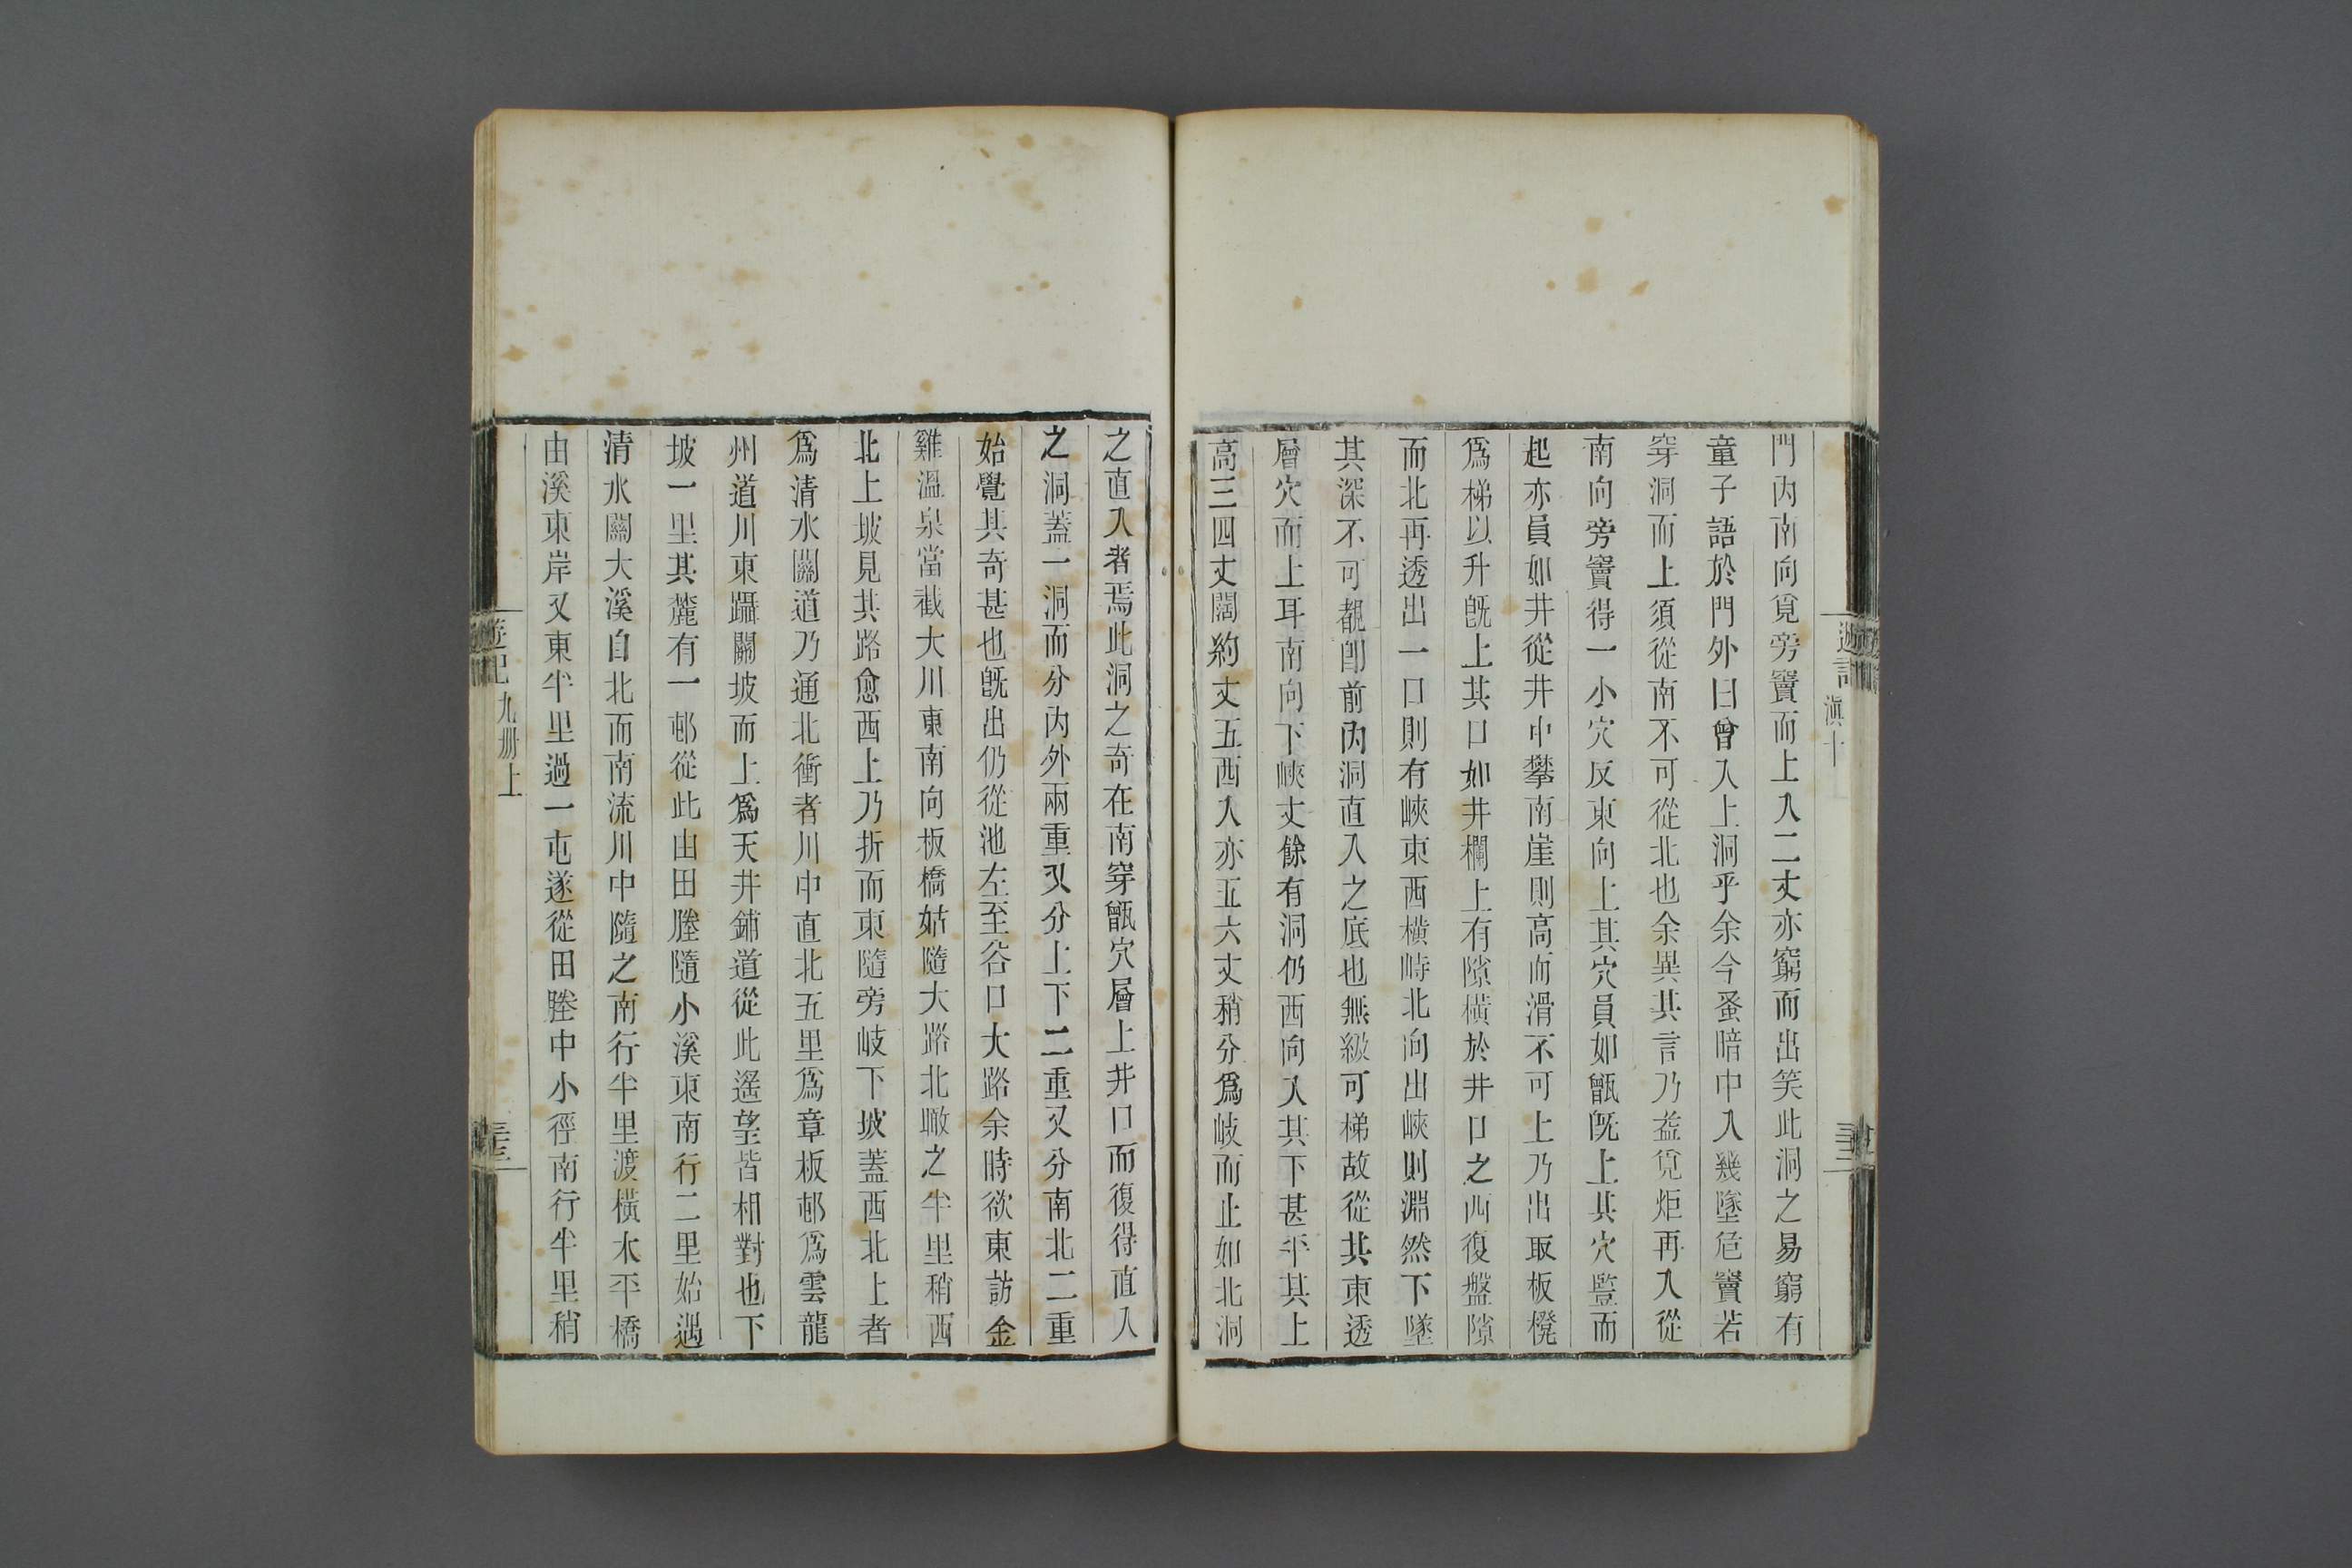 遊記 滇十
門內南向覓旁竇而上入二丈亦窮而出笑此洞之易窮有
童子語於門外曰曾入上洞乎余今蚤暗中入幾墜危竇若
穿洞而上須從南不可從北也余異其言乃益覓炬再入從
南向旁竇得一小穴反東向上其穴員如甑旣上其穴豎而
起亦員如井從井中攀南崖則高而滑不可上乃出取板櫈
爲梯以升旣上其口如井欄上有隙橫於井口之西復盤隙
而北再透出一口則有峽東西橫峙北向出峽則淵然下墜
其深不可覩卽前內洞直入之底也無級可梯故從其東透
層穴而上耳南向下峽丈餘有洞仍西向入其下甚平其上
高三四丈闊約丈五西入亦五六丈稍分爲岐而止如北洞
之直入者焉此洞之奇在南穿甑穴層上井口而復得直入
之洞蓋一洞而分內外兩重又分上下二重又分南北二重
始覺其奇甚也旣出仍從池左至谷口大路余時欲東訪金
雞溫泉當截大川東南向板橋姑隨大路北瞰之半里稍西
北上坡見其路愈西上乃折而東隨旁岐下坡蓋西北上者
爲清水關道乃通北衝者川中直北五里爲章板邨爲雲龍
州道川東躡關坡而上爲天井鋪道從此遙望皆相對也下
坡一里其麓有一邨從此由田塍隨小溪東南行二里始遇
清水關大溪自北而南流川中隨之南行半里渡橫木平橋
由溪東岸又東半里過一屯遂從田塍中小徑南行半里稍
遊記 九册上